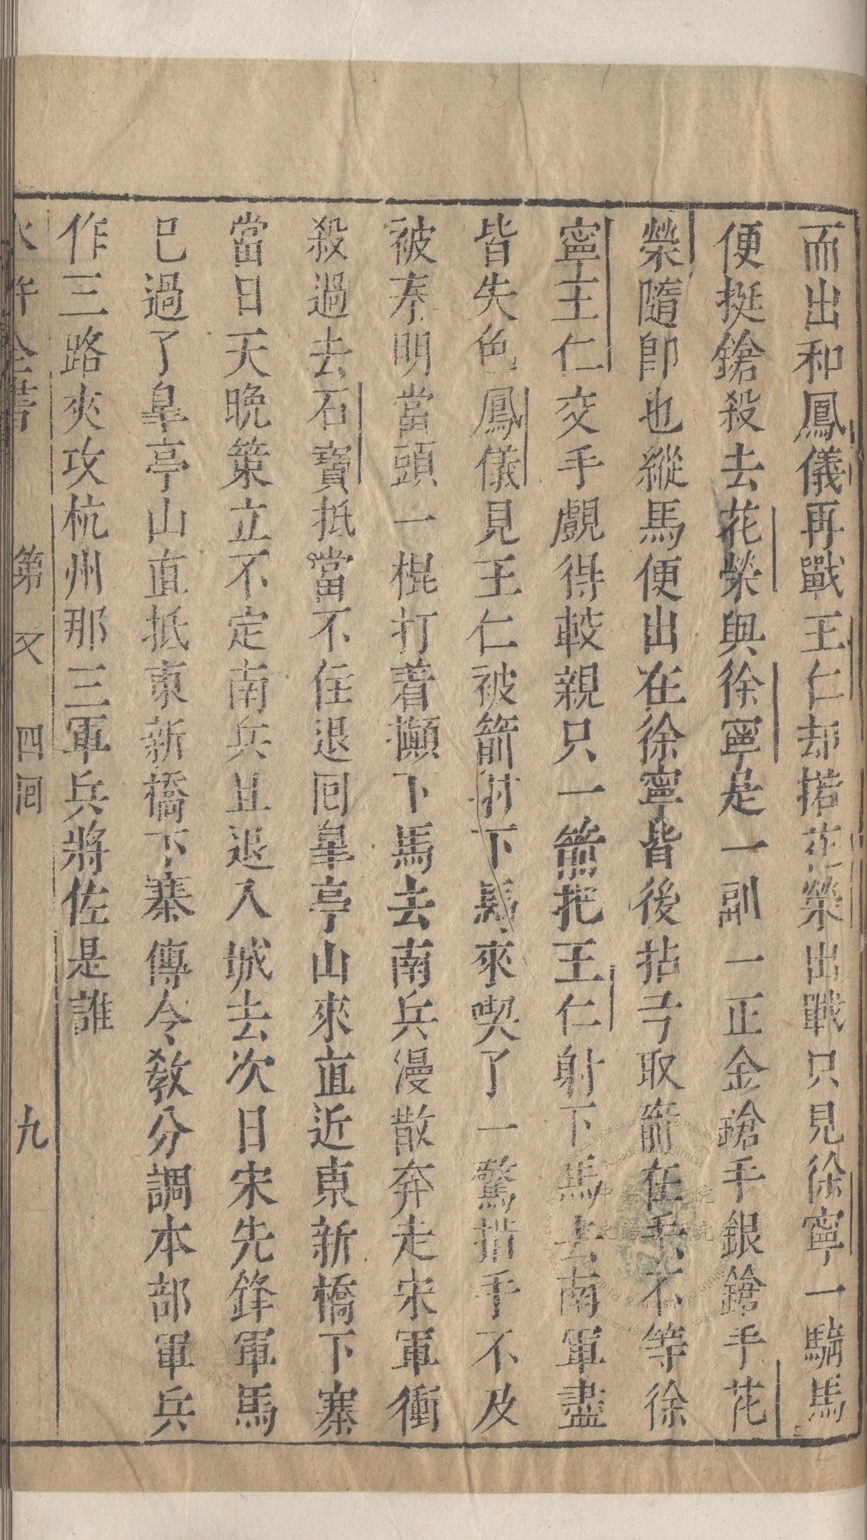 而出和鳳儀再戰王仁却搭花榮出戰只見徐寧一騎馬
便挺鎗殺去花榮與徐寧是一副一正金鎗手銀鎗手花
榮隨卽也縱馬便出在徐寧背後拈弓取箭在手不等徐
寧王仁交手覷得較親只一箭把王仁射下馬去南軍盡
皆失色鳳儀見王仁被箭射下馬來喫了一驚措手不及
被秦明當頭一棍打着攧下馬去南兵漫散奔走宋軍衝
殺過去石寶抵當不住退回皐亭山來直近東新橋下寨
當日天晚策立不定南兵且退入城去次日宋先鋒軍馬
已過了皐亭山直抵東新橋下寨傳令教分調本部軍兵
作三路夾攻杭州那三軍兵將佐是誰
水滸全書 第 四回 九